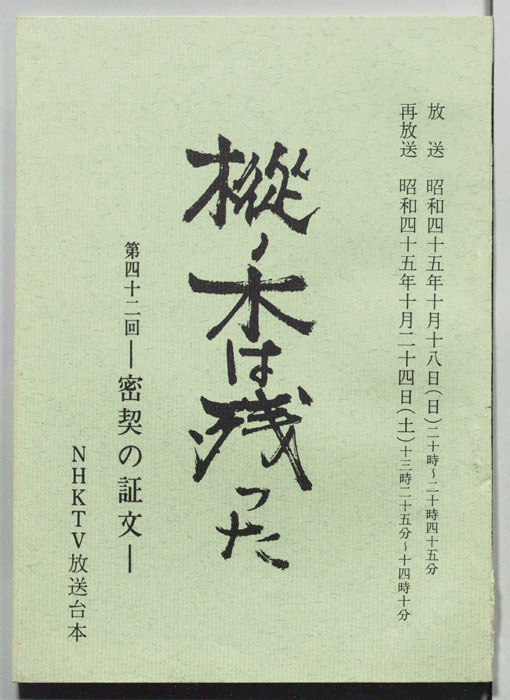 放送 昭和四十五年十月十八日(日)二十時~二十時四十五分
再放送 昭和四十五年十月二十四日(土)十三時二十五分~十四時十分
樅ノ木は残った
第四十二回―密契の証文―
NHKTV放送台本